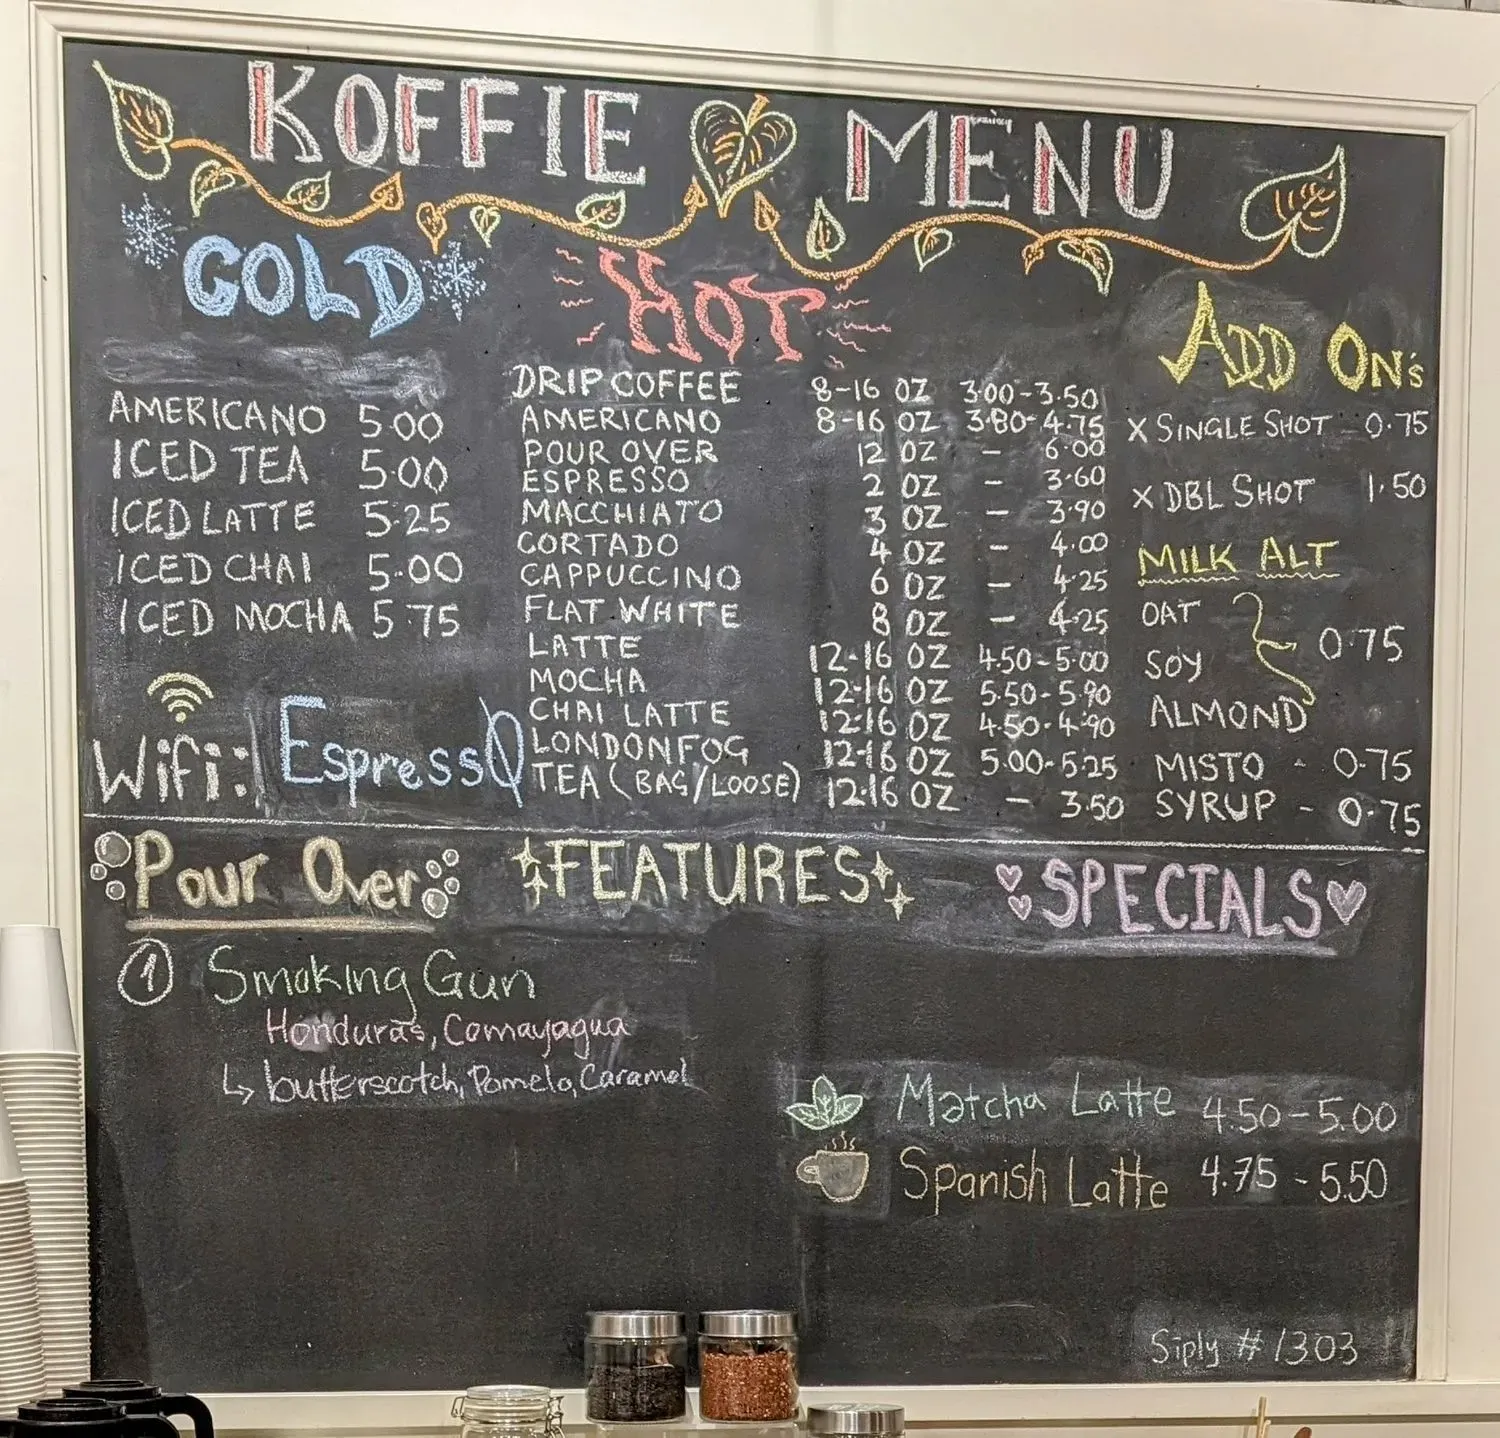 KOFFIE MENU
COLD
AMERICANO 5.00
ICED TEA 5.00
ICED LATTE 5.25
ICED CHAI 5.00
ICED MOCHA 5.75
Wifi: EspressO
HOT
DRIP COFFEE 8-16 OZ 3.00-3.50
AMERICANO 8-16 OZ 3.80-4.75
POUR OVER 12 OZ - 6.00
ESPRESSO 2 OZ - 3.60
MACCHIATO 3 OZ - 3.90
CORTADO 4 OZ - 4.00
CAPPUCCINO 6 OZ - 4.25
FLAT WHITE 8 OZ - 4.25
LATTE 12-16 OZ 4.50-5.00
MOCHA 12-16 OZ 5.50-5.90
CHAI LATTE 12-16 OZ 4.50-4.90
LONDONFOG 12-16 OZ 5.00-5.25
TEA (BAG/LOOSE) 12-16 OZ - 3.50
ADD ON's
X SINGLE SHOT - 0.75
X DBL SHOT 1.50
MILK ALT
OAT
SOY 0.75
ALMOND
MISTO - 0.75
SYRUP - 0.75
Pour Over
1 Smoking Gun
Honduras, Comayagua
butterscotch, Pomelo, Caramel
FEATURES
SPECIALS
Matcha Latte 4.50-5.00
Spanish Latte 4.75 - 5.50
Siply # 1303